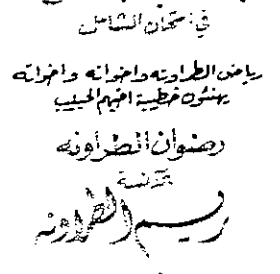 في: سمحان الشامل
رياض الطراونه واخوانه واخواته
يهنئون خطيبة اخيهم الحبيب
رضوان الطراونه
الآنسة
ريم الطراونه